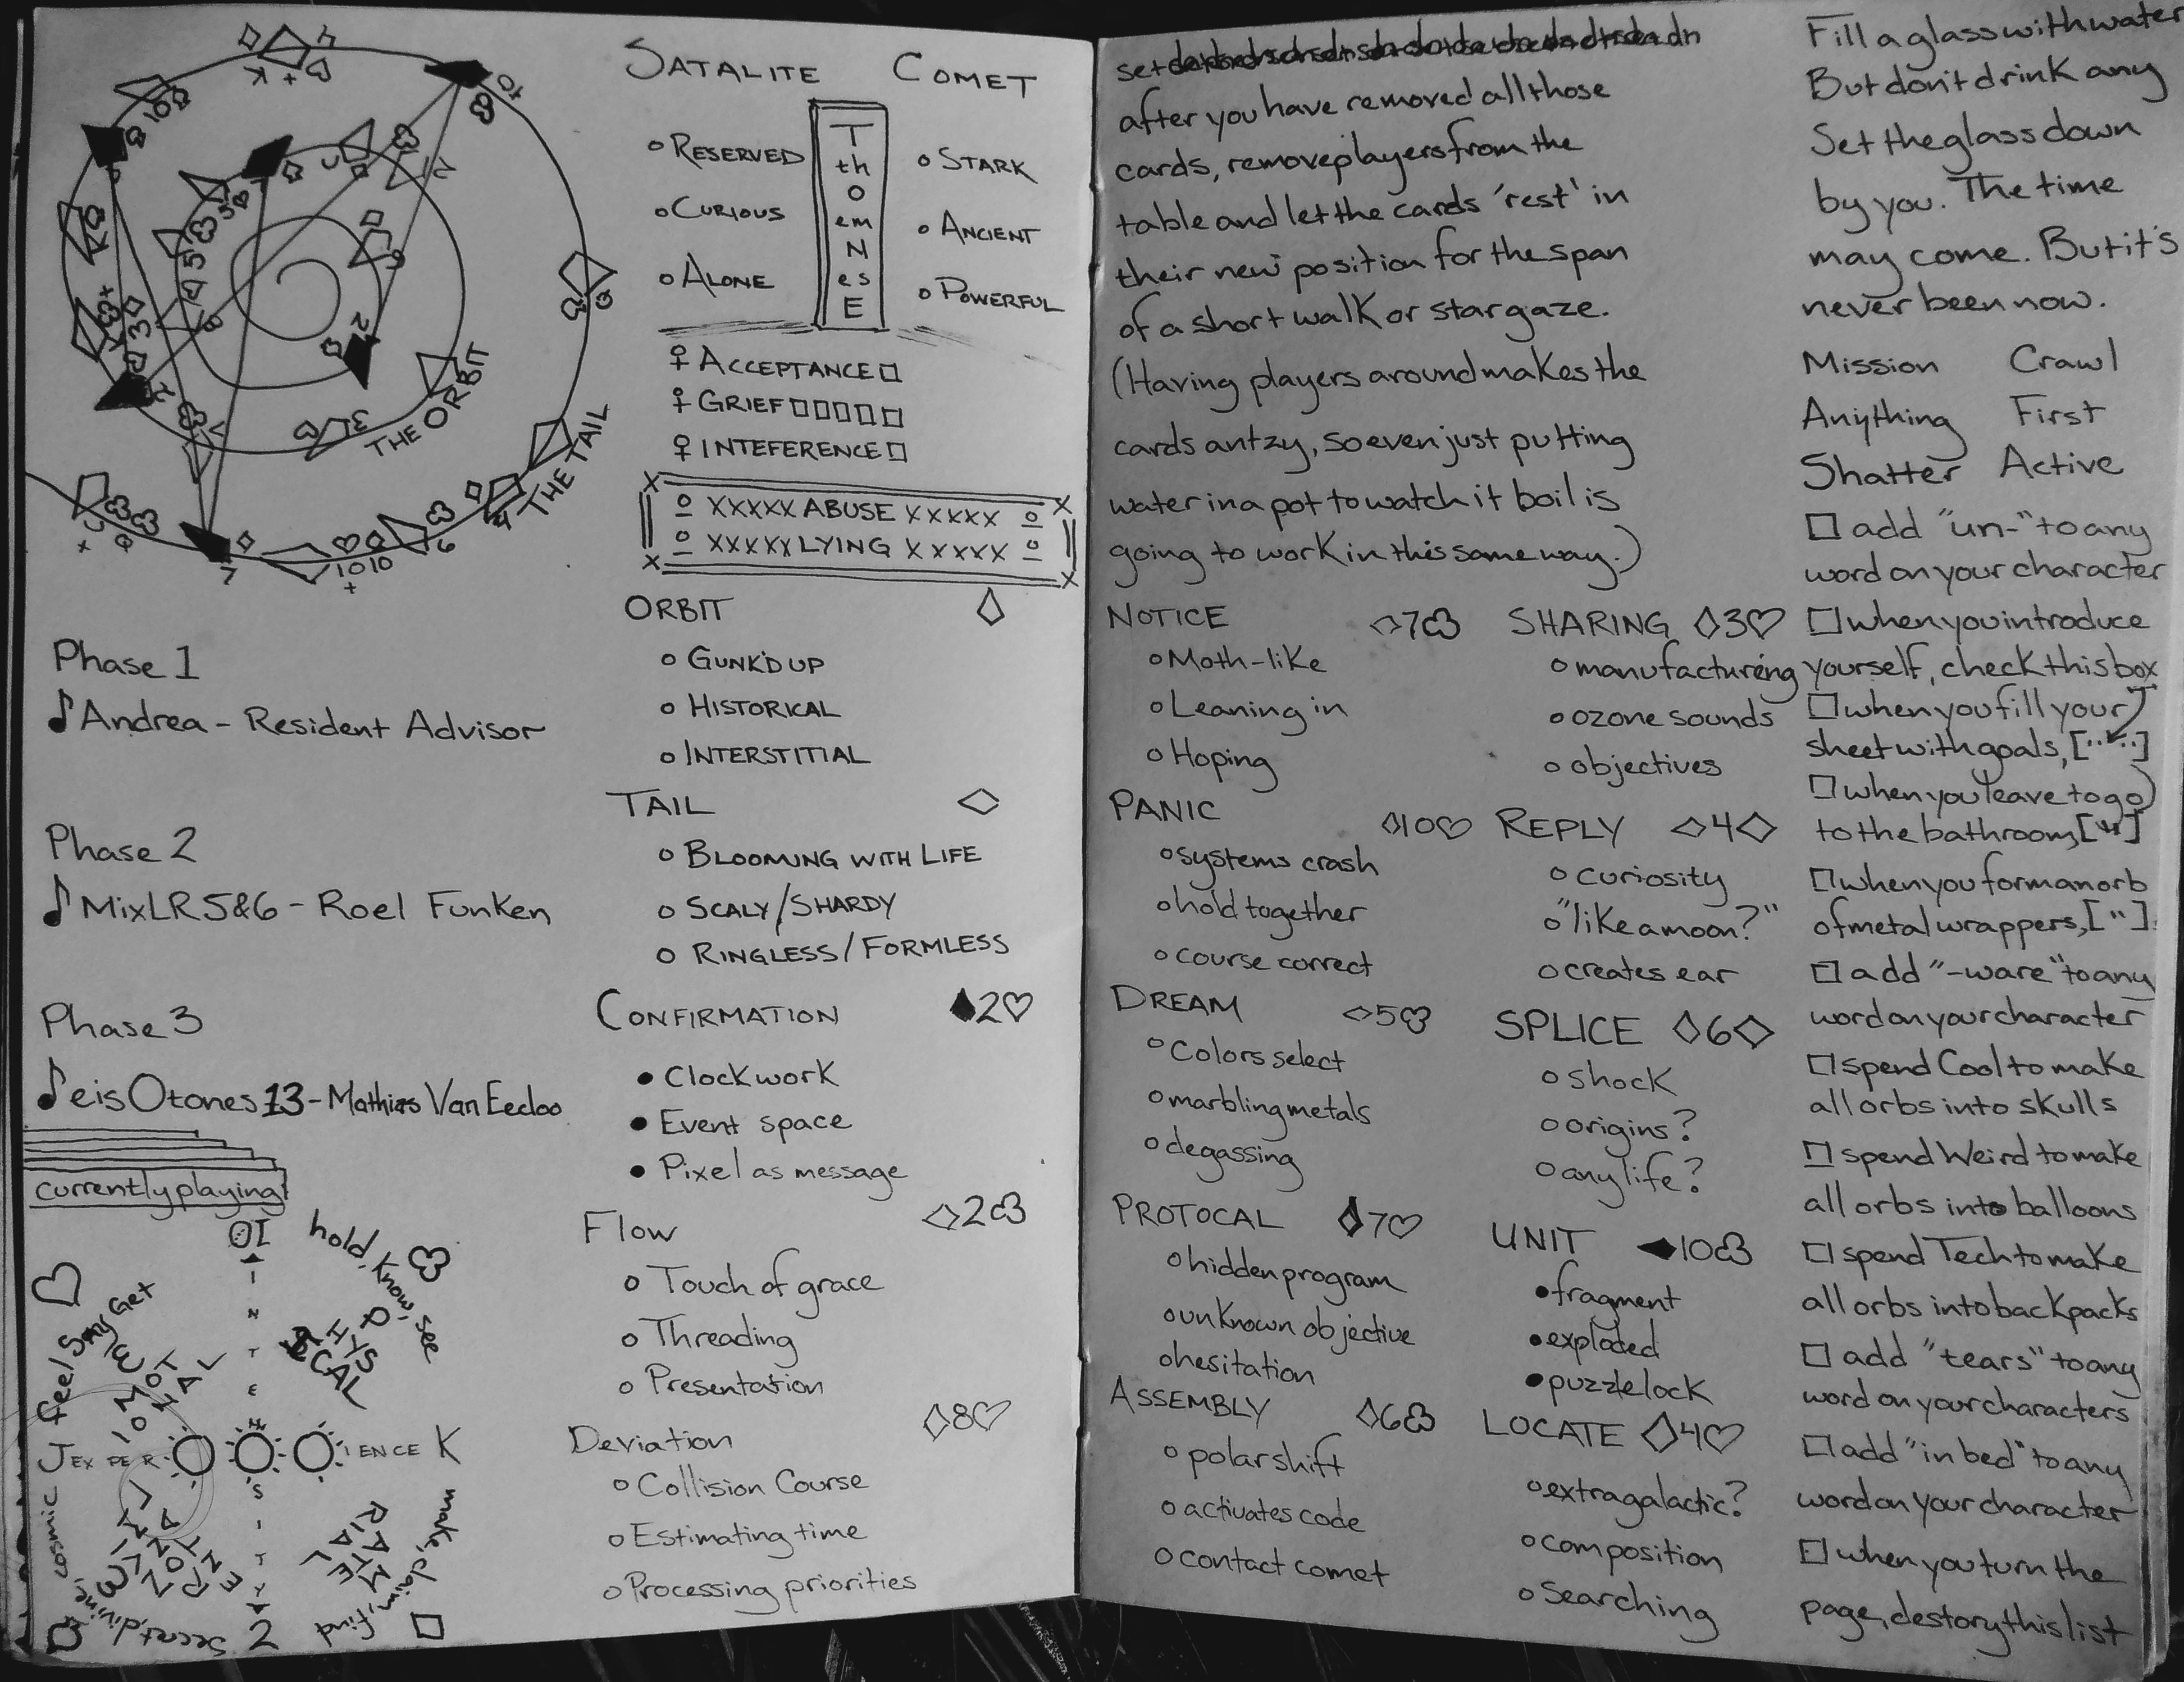 THE ORBIT
THE TAIL
Phase 1
Andrea - Resident Advisor
Phase 2
MixLR 5&6 - Roel Funken
Phase 3
eisOtones 13 - Mathias Van Eecloo
currently playing
10
INTENSITY
2
hold, know, see
PHYSICAL
feel, say, get
EMOTIONAL
J EXPERIENCE K
cosmic, divine, secret
make, claim, find
MATERIAL
SATALITE COMET
ThOemNesE
o RESERVED
o CURIOUS
o ALONE
o STARK
o ANCIENT
o POWERFUL
♀ ACCEPTANCE □
♀ GRIEF □□□□□
♀ INTEFERENCE □
XXXXX ABUSE XXXXX
XXXXX LYING XXXXX
ORBIT ◇
o GUNK'D UP
o HISTORICAL
o INTERSTITIAL
TAIL ◇
o BLOOMING WITH LIFE
o SCALY/SHARDY
o RINGLESS/FORMLESS
CONFIRMATION ♦2♡
• Clockwork
• Event space
• Pixel as message
Flow ◇2♧
o Touch of grace
o Threading
o Presentation
Deviation ◇8♡
o Collision Course
o Estimating time
o Processing priorities
set
after you have removed all those
cards, remove players from the
table and let the cards 'rest' in
their new position for the span
of a short walk or stargaze.
(Having players around makes the
cards antzy, so even just putting
water in a pot to watch it boil is
going to work in this same way.)
NOTICE ◇7♧
o Moth-like
o Leaning in
o Hoping
PANIC ◇10♡
o systems crash
o hold together
o course correct
DREAM ◇5♧
o Colors select
o marbling metals
o degassing
PROTOCAL ◇7♡
o hidden program
o unknown objective
o hesitation
ASSEMBLY ◇6♧
o polar shift
o activates code
o contact comet
SHARING ◇3♡
o manufacturing
o ozone sounds
o objectives
REPLY ◇4◇
o curiosity
o "like a moon?"
o creates ear
SPLICE ◇6◇
o shock
o origins?
o any life?
UNIT ♦10♧
• fragment
• exploded
• puzzle lock
LOCATE ◇4♡
o extragalactic?
o composition
o Searching
Fill a glass with water
But don't drink any
Set the glass down
by you. The time
may come. But it's
never been now.
Mission Crawl
Anything First
Shatter Active
□ add "un-" to any
word on your character
□ when you introduce
yourself, check this box
□ when you fill your
sheet with goals, [ ]
□ when you leave to go
to the bathroom, ["]
□ when you form an orb
of metal wrappers, ["]
□ add "-ware" to any
word on your character
□ spend Cool to make
all orbs into skulls
□ spend Weird to make
all orbs into balloons
□ spend Tech to make
all orbs into backpacks
□ add "tears" to any
word on your characters
□ add "in bed" to any
word on your character
□ when you turn the
page, destory this list